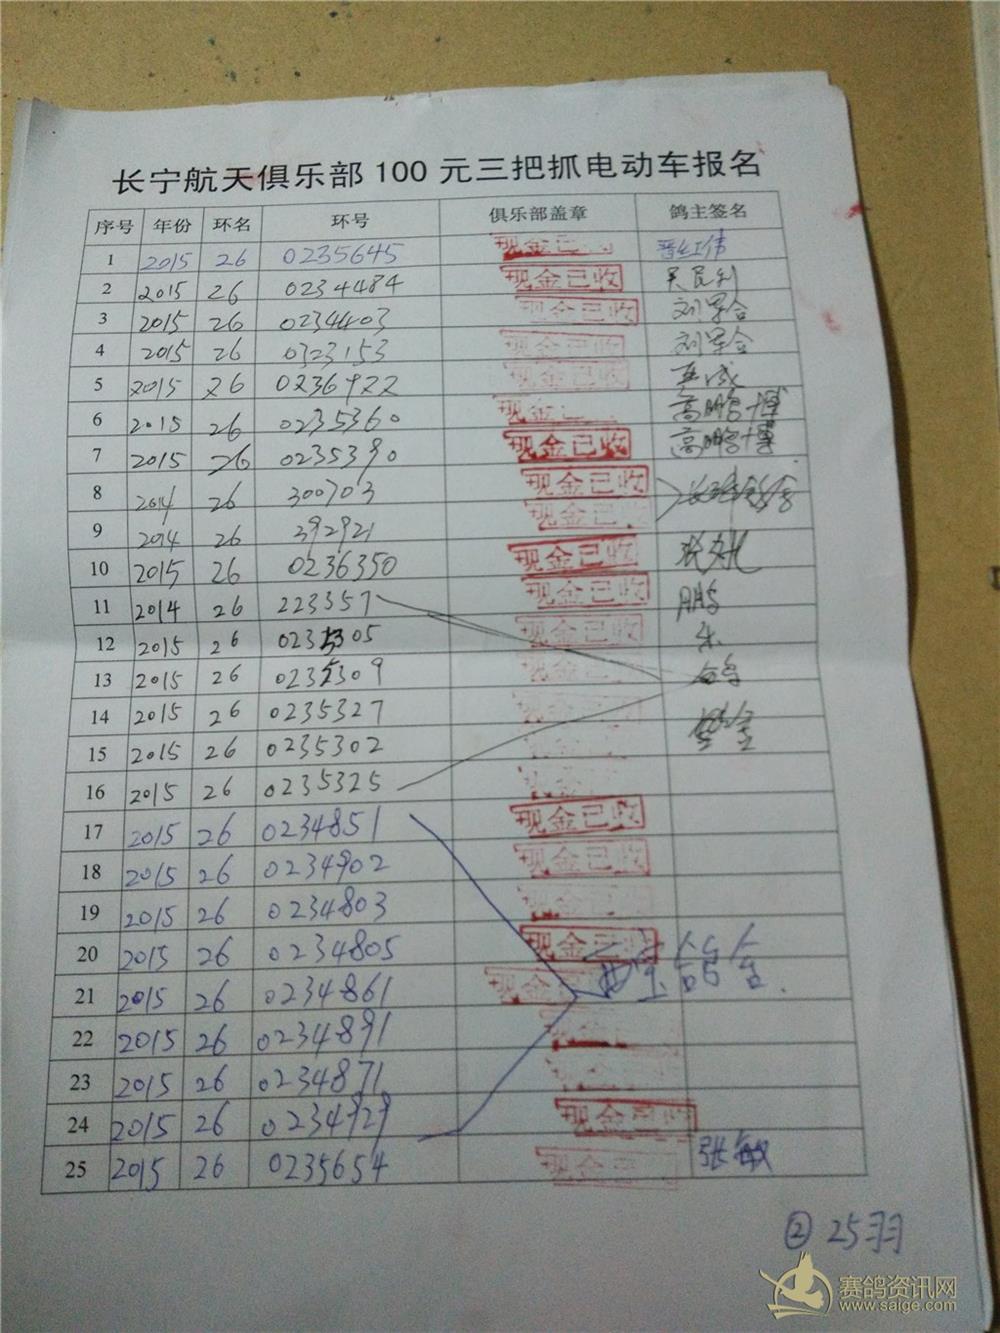 长宁航天俱乐部 100 元三把抓电动车报名
序号 年份 环名 环号 俱乐部盖章 鸽主签名
1 2015 26 0235645 现金已收
2 2015 26 0234484 现金已收
3 2015 26 0234403 现金已收 刘军合
4 2015 26 0323153 现金已收 刘军合
5 2015 26 0236922 现金已收
6 2015 26 0235360 现金已收 高鹏博
7 2015 26 0235390 现金已收 高鹏博
8 2014 26 300703 现金已收
9 2014 26 392921 现金已收
10 2015 26 0236350 现金已收
11 2014 26 223357 现金已收 鹏
12 2015 26 0235305 现金已收
13 2015 26 0235309 现金已收
14 2015 26 0235327
15 2015 26 0235302
16 2015 26 0235325
17 2015 26 0234851 现金已收
18 2015 26 0234902 现金已收
19 2015 26 0234803
20 2015 26 0234805 现金已收
21 2015 26 0234861 现金
22 2015 26 0234891
23 2015 26 0234871
24 2015 26 0234929 现金已收
25 2015 26 0235654 现金已收 张敏
② 25羽
赛鸽资讯网
www.saige.com